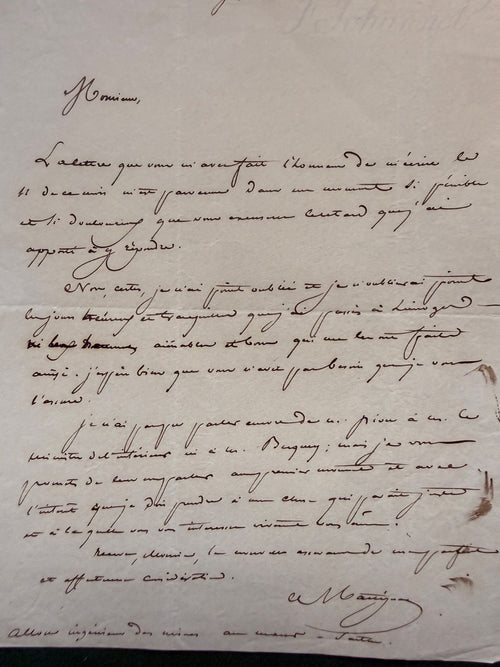 Monsieur,
La lettre que vous m'avez fait l'honneur de m'écrire le
11 de ce mois m'est parvenue dans un moment si pénible
et si douloureux que vous excuserez le retard que j'ai
apporté à y répondre.
Non, certes, je n'ai point oublié et je n'oublierai point
les jours heureux et tranquilles que j'ai passés à Limoges
aimables et bons qui me les ont faits
ainsi. j'espère bien que vous n'avez pas besoin que je vous
l'assure.
je n'ai pas pu parler encore de M. à M. le
Ministre de l'intérieur ni à M. ; mais je vous
promets de leur en parler au premier moment et avec
l'intérêt que je dois prendre à une chose qui paraît juste
et à laquelle vous vous intéressez vivement vous même.
Recevez, Monsieur, la nouvelle assurance de ma parfaite
et affectueuse considération.
ingénieur des mines au